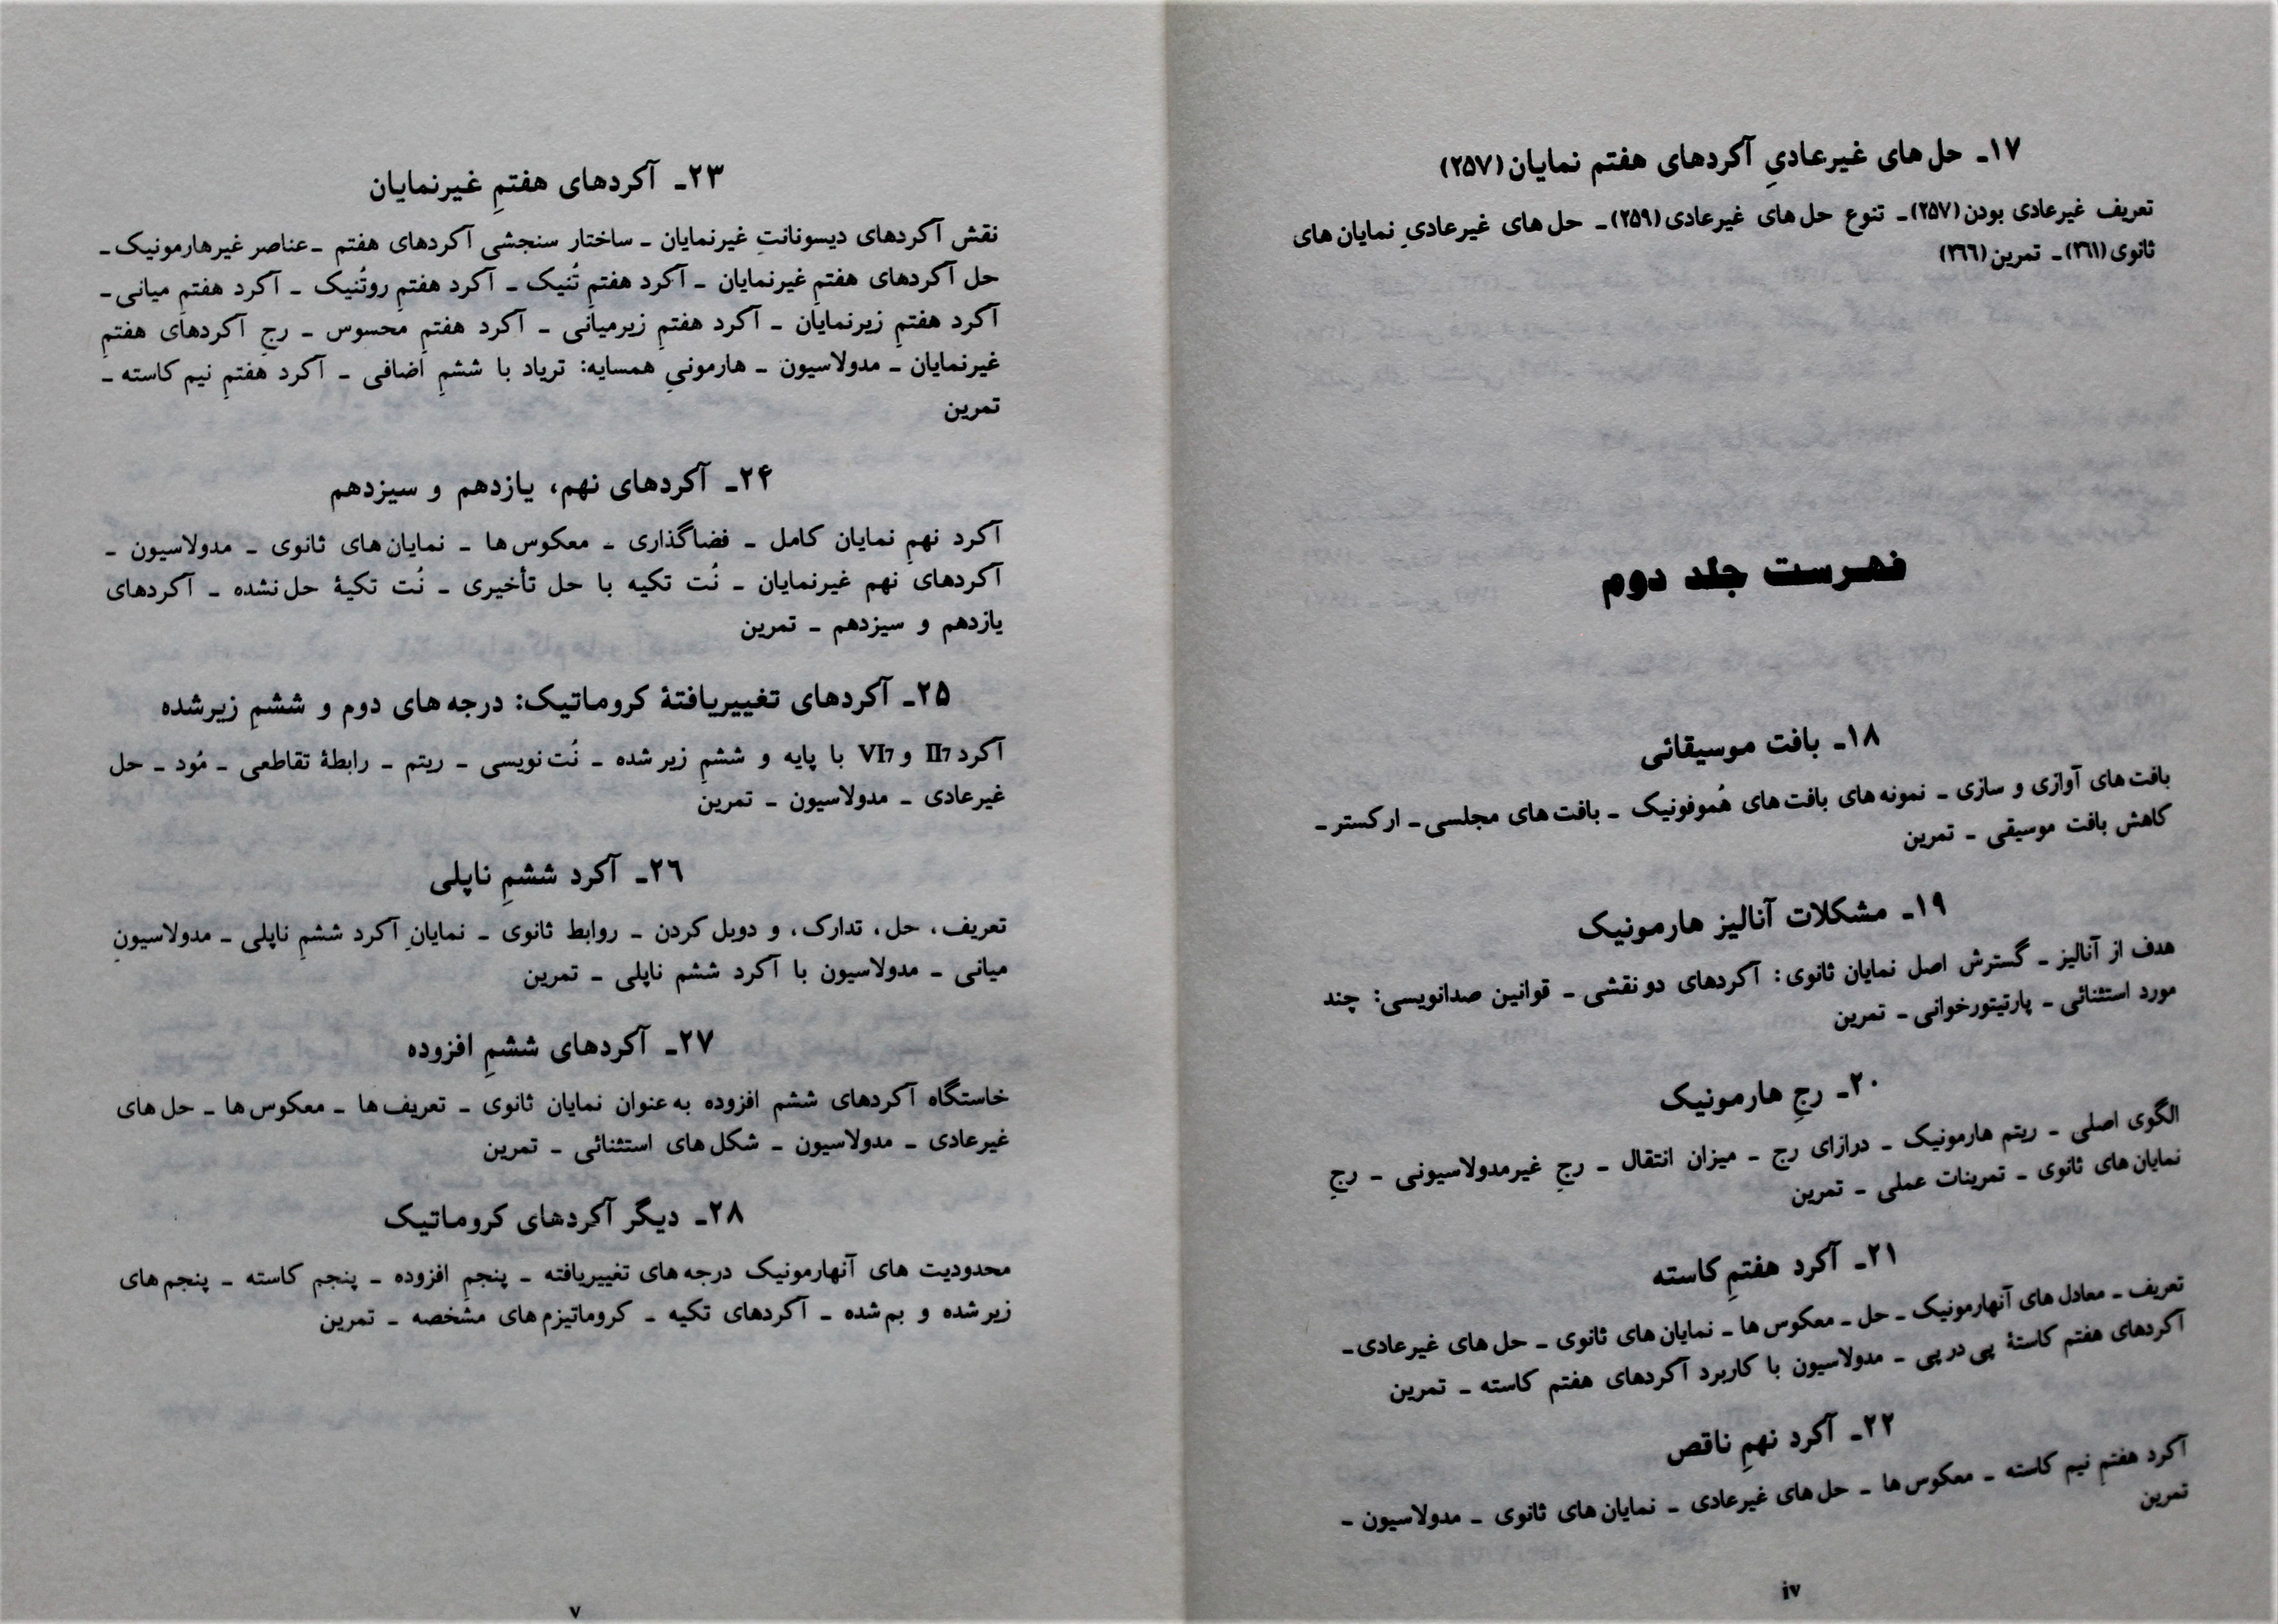 ۱۷ـ حل‌های غیرعادیِ آکردهای هفتم نمایان (۲۵۷)
تعریف غیرعادی بودن (۲۵۷) ـ تنوع حل‌های غیرعادی (۲۵۹) ـ حل‌های غیرعادیِ نمایان‌های
ثانوی (۲۶۱) ـ تمرین (۲۶۶)
فهرست جلد دوم
۱۸ـ بافت موسیقائی
بافت‌های آوازی و سازی ـ نمونه‌های بافت‌های هُموفونیک ـ بافت‌های مجلسی ـ ارکستر ـ
کاهش بافت موسیقی ـ تمرین
۱۹ـ مشکلات آنالیز هارمونیک
هدف از آنالیز ـ گسترش اصل نمایان ثانوی: آکردهای دو نقشی ـ قوانین صدانویسی: چند
مورد استثنائی ـ پارتیتورخوانی ـ تمرین
۲۰ـ رجِ هارمونیک
الگوی اصلی ـ ریتم هارمونیک ـ درازای رج ـ میزان انتقال ـ رجِ غیرمدولاسیونی ـ رجِ
نمایان‌های ثانوی ـ تمرینات عملی ـ تمرین
۲۱ـ آکرد هفتمِ کاسته
تعریف ـ معادل‌های آنهارمونیک ـ حل ـ معکوس‌ها ـ نمایان‌های ثانوی ـ حل‌های غیرعادی ـ
آکردهای هفتم کاستهٔ پی‌درپی ـ مدولاسیون با کاربرد آکردهای هفتم کاسته ـ تمرین
۲۲ـ آکرد نهمِ ناقص
آکرد هفتمِ نیم کاسته ـ معکوس‌ها ـ حل‌های غیرعادی ـ نمایان‌های ثانوی ـ مدولاسیون ـ
تمرین
iv
۲۳ـ آکردهای هفتمِ غیرنمایان
نقش آکردهای دیسونانتِ غیرنمایان ـ ساختار سنجشیِ آکردهای هفتم ـ عناصر غیرهارمونیک ـ
حل آکردهای هفتمِ غیرنمایان ـ آکرد هفتمِ تُنیک ـ آکرد هفتمِ روتُنیک ـ آکرد هفتمِ میانی ـ
آکرد هفتمِ زیرنمایان ـ آکرد هفتمِ زیرمیانی ـ آکرد هفتمِ محسوس ـ رجِ آکردهای هفتمِ
غیرنمایان ـ مدولاسیون ـ هارمونیِ همسایه: تریاد با ششمِ اضافی ـ آکرد هفتمِ نیم کاسته ـ
تمرین
۲۴ـ آکردهای نهم، یازدهم و سیزدهم
آکرد نهمِ نمایان کامل ـ فضاگذاری ـ معکوس‌ها ـ نمایان‌های ثانوی ـ مدولاسیون ـ
آکردهای نهم غیرنمایان ـ نُت تکیه با حل تأخیری ـ نُت تکیهٔ حل‌نشده ـ آکردهای
یازدهم و سیزدهم ـ تمرین
۲۵ـ آکردهای تغییریافتهٔ کروماتیک: درجه‌های دوم و ششمِ زیرشده
آکرد II7 و VI7 با پایه و ششمِ زیر شده ـ نُت‌نویسی ـ ریتم ـ رابطهٔ تقاطعی ـ مُود ـ حل
غیرعادی ـ مدولاسیون ـ تمرین
۲۶ـ آکرد ششمِ ناپلی
تعریف، حل، تدارک، و دوبل کردن ـ روابط ثانوی ـ نمایانِ آکرد ششمِ ناپلی ـ مدولاسیونِ
میانی ـ مدولاسیون با آکرد ششم ناپلی ـ تمرین
۲۷ـ آکردهای ششمِ افزوده
خاستگاه آکردهای ششم افزوده به‌عنوان نمایان ثانوی ـ تعریف‌ها ـ معکوس‌ها ـ حل‌های
غیرعادی ـ مدولاسیون ـ شکل‌های استثنائی ـ تمرین
۲۸ـ دیگر آکردهای کروماتیک
محدودیت های آنهارمونیک درجه‌های تغییریافته ـ پنجمِ افزوده ـ پنجم کاسته ـ پنجم‌های
زیر شده و بم شده ـ آکردهای تکیه ـ کروماتیزم‌های مشخصه ـ تمرین
v